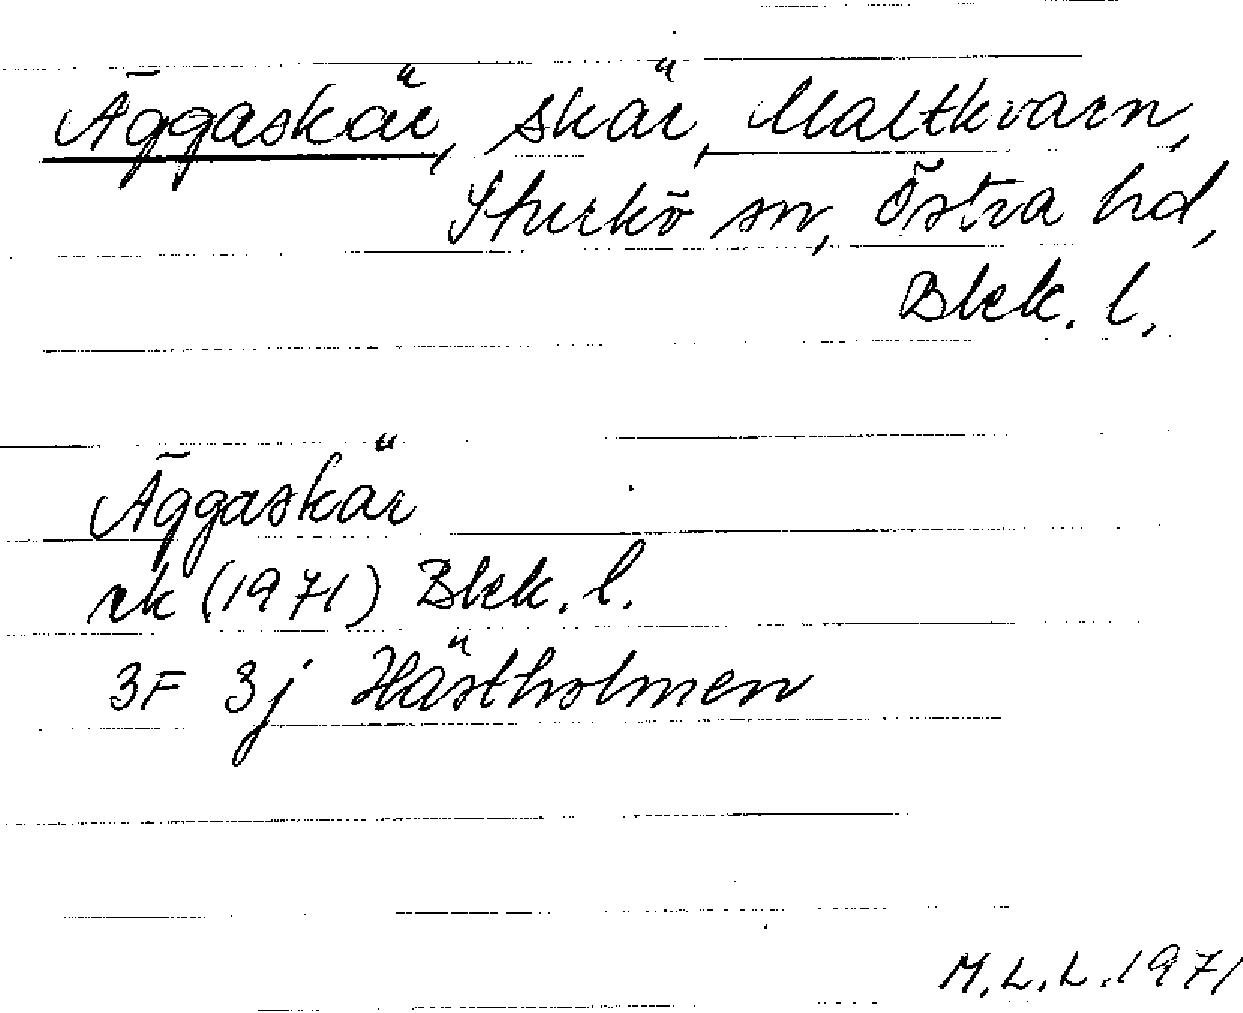 Äggaskär, skär, Maltkvarn,
Sturkö sn, Östra hd,
Blek. l.
Äggaskär
ek (1971) Blek. l.
3F 3j Hästholmen
M.L.L. 1971